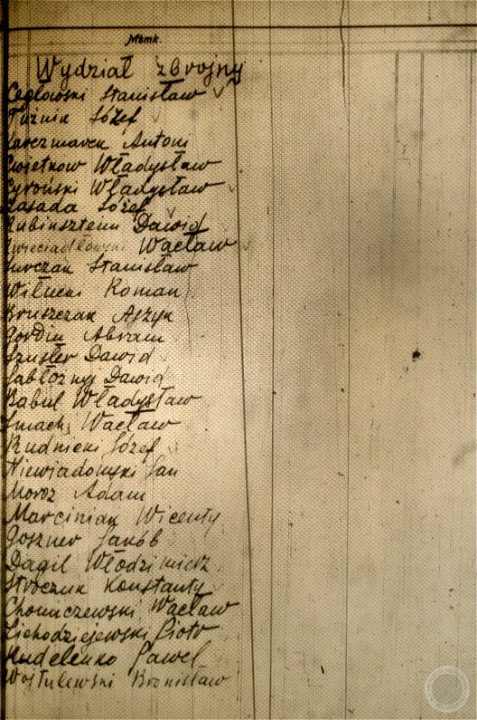 Mbmk.
Wydział zbrojny
Cegłowski Stanisław
Józef
Karczmarek Antoni
Władysław
Cyroński Władysław
Zasada Józef
Rubinsztein Dawid
Wacław
Stanisław
Wilucki Roman
Bruszczak
Gordin Abram
Szuster Dawid
Jabłoczny Dawid
Babul Władysław
Wacław
Rudnicki Józef
Niewiadomski Jan
Moroz Adam
Marciniak Wicenty
Joszner Jakób
Dagil Włodzimierz
Stroczuk Konstanty
Chomaczewski Wacław
Lichodziejewski Piotr
Hudelenko Paweł
Wojtulewski Bronisław